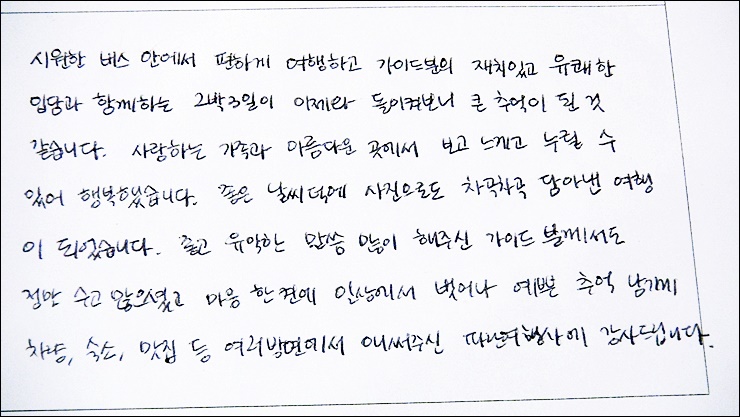 시원한 버스 안에서 편하게 여행하고 가이드분의 재치있고 유쾌한
입담과 함께하는 2박3일이 이제와 돌이켜보니 큰 추억이 된 것
같습니다. 사랑하는 가족과 아름다운 곳에서 보고 느끼고 누릴 수
있어 행복했습니다. 좋은 날씨덕에 사진으로도 차곡차곡 담아낸 여행
이 되었습니다. 좋고 유악한 말씀 많이 해주신 가이드 분께서도
정말 수고 많으셨고 마음 한켠에 일상에서 벗어나 예쁜 추억 남기게
차량, 숙소, 맛집 등 여러방면에서 애써주신 따난여행사에 감사드립니다.